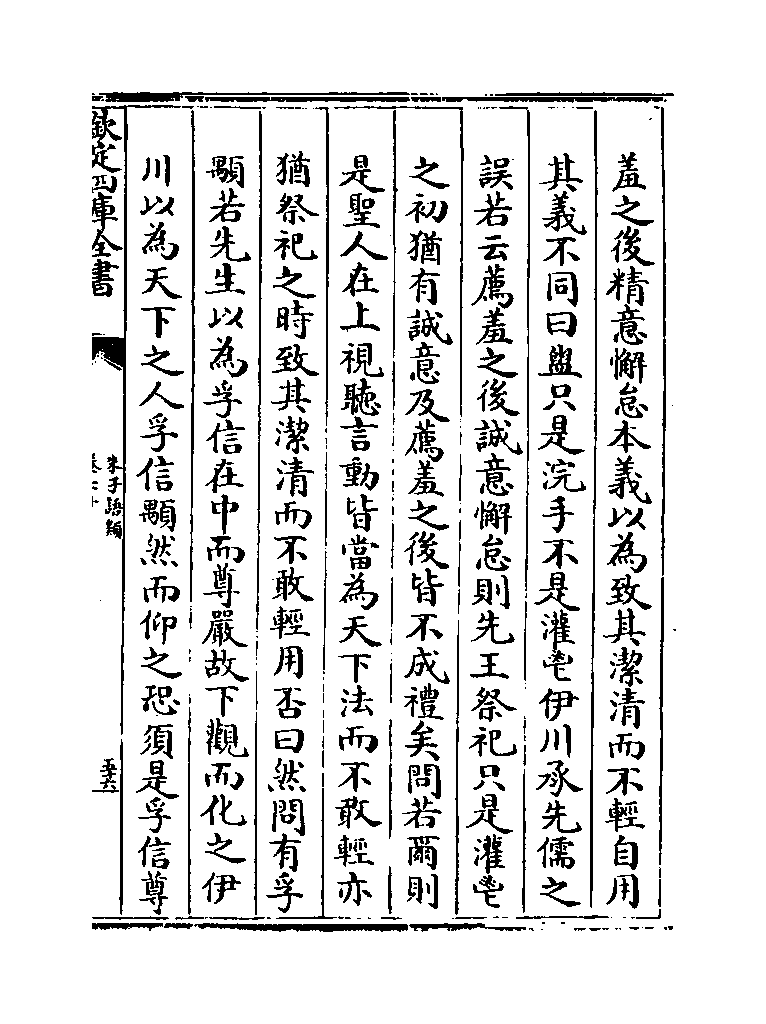 羞之後精意懈怠本義以為致其潔清而不輕自用
其義不同曰盥只是浣手不是灌鬯伊川承先儒之
誤若云薦羞之後誠意懈怠則先王祭祀只是灌鬯
之初猶有誠意及薦羞之後皆不成禮矣問若爾則
是聖人在上視聽言動皆當為天下法而不敢輕亦
猶祭祀之時致其潔清而不敢輕用否曰然問有孚
顒若先生以為孚信在中而尊嚴故下觀而化之伊
川以為天下之人孚信顒然而仰之恐須是孚信尊
欽定四庫全書
朱子語類
卷七十
五十六